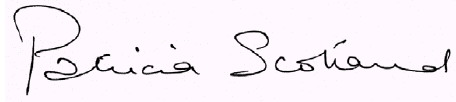 Patricia Scotland